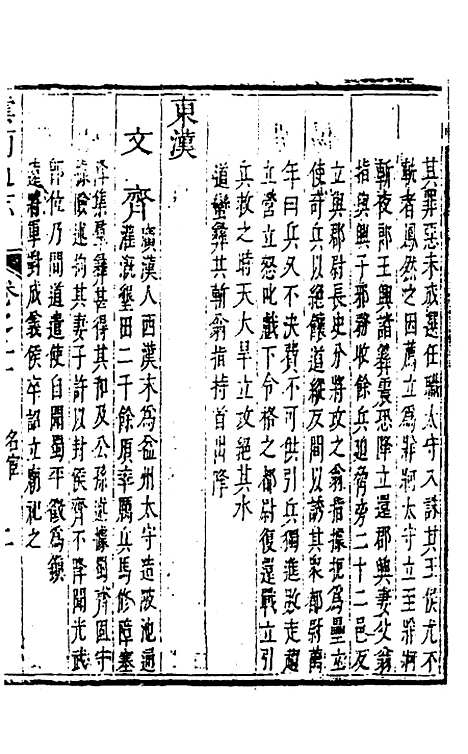 其罪惡未成選任職太守入誅其王侯尤不
軌者鳳然之因薦立為牂牁太守立至牂牁
斬夜郎王興諸夷震恐降立還郡興妻父翁
指與興子邪務收餘兵迫脅旁二十二邑反
立與郡尉長史分將攻之翁指據扼為壘立
使奇兵以絕饟道縱反間以誘其衆都尉萬
年曰兵久不決費不可供引兵獨進敗走趨
立營立怒叱戲下令格之都尉復還戰立引
兵救之時天大旱立攻絕其水
道蠻彝其斬翁指持首出降
東漢
文齊 廣漢人西漢末為益州太守造陂池通
灌溉墾田二千餘頃率厲兵馬修障塞
降集羣彝甚得其和及公孫述據蜀齊固守
據險述拘其妻子許以封侯齊不降聞光武
即位乃間道遣使自聞蜀平徵為鎮
遠將軍封成義侯卒詔立廟祀之
卷之十 名宦 二